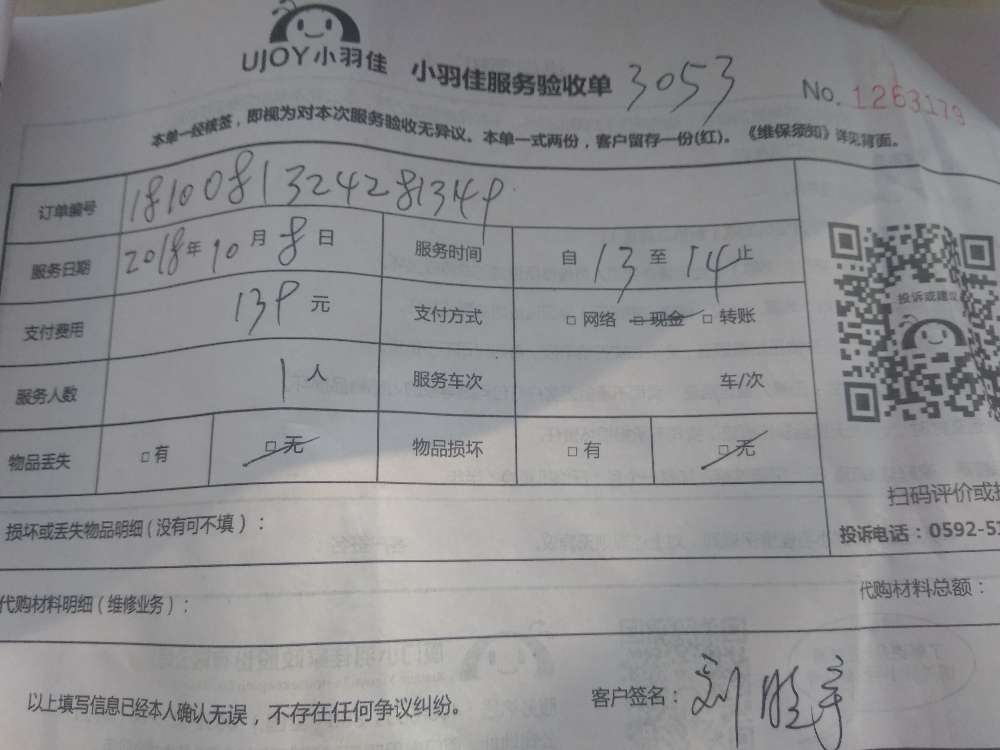 UJOY小羽佳
小羽佳服务验收单 3053 No. 1263179
本单一经核签，即视为对本次服务验收无异议。本单一式两份，客户留存一份(红)。《维保须知》详见背面。
订单编号 1810081324281349
服务日期 2018年10月8日 服务时间 自13至14止
支付费用 139元 支付方式 □网络 □现金 □转账
服务人数 1人 服务车次 车/次
物品丢失 □有 □无 物品损坏 □有 □无
投诉或建议
扫码评价或投
投诉电话：0592-51
损坏或丢失物品明细（没有可不填）：
代购材料明细（维修业务）： 代购材料总额：
以上填写信息已经本人确认无误，不存在任何争议纠纷。 客户签名：刘